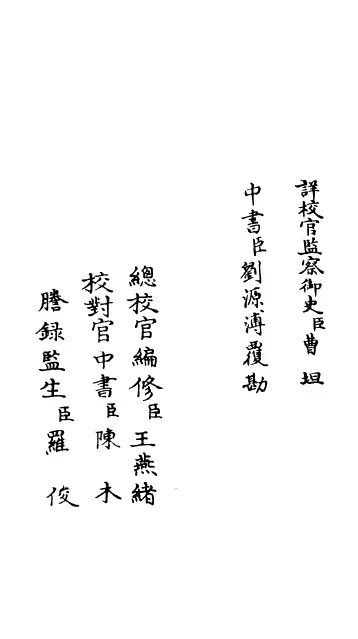 詳校官監察御史臣曹坦
中書臣劉源溥覆勘
總校官編修臣王燕緒
校對官中書臣陳木
謄録監生臣羅俊